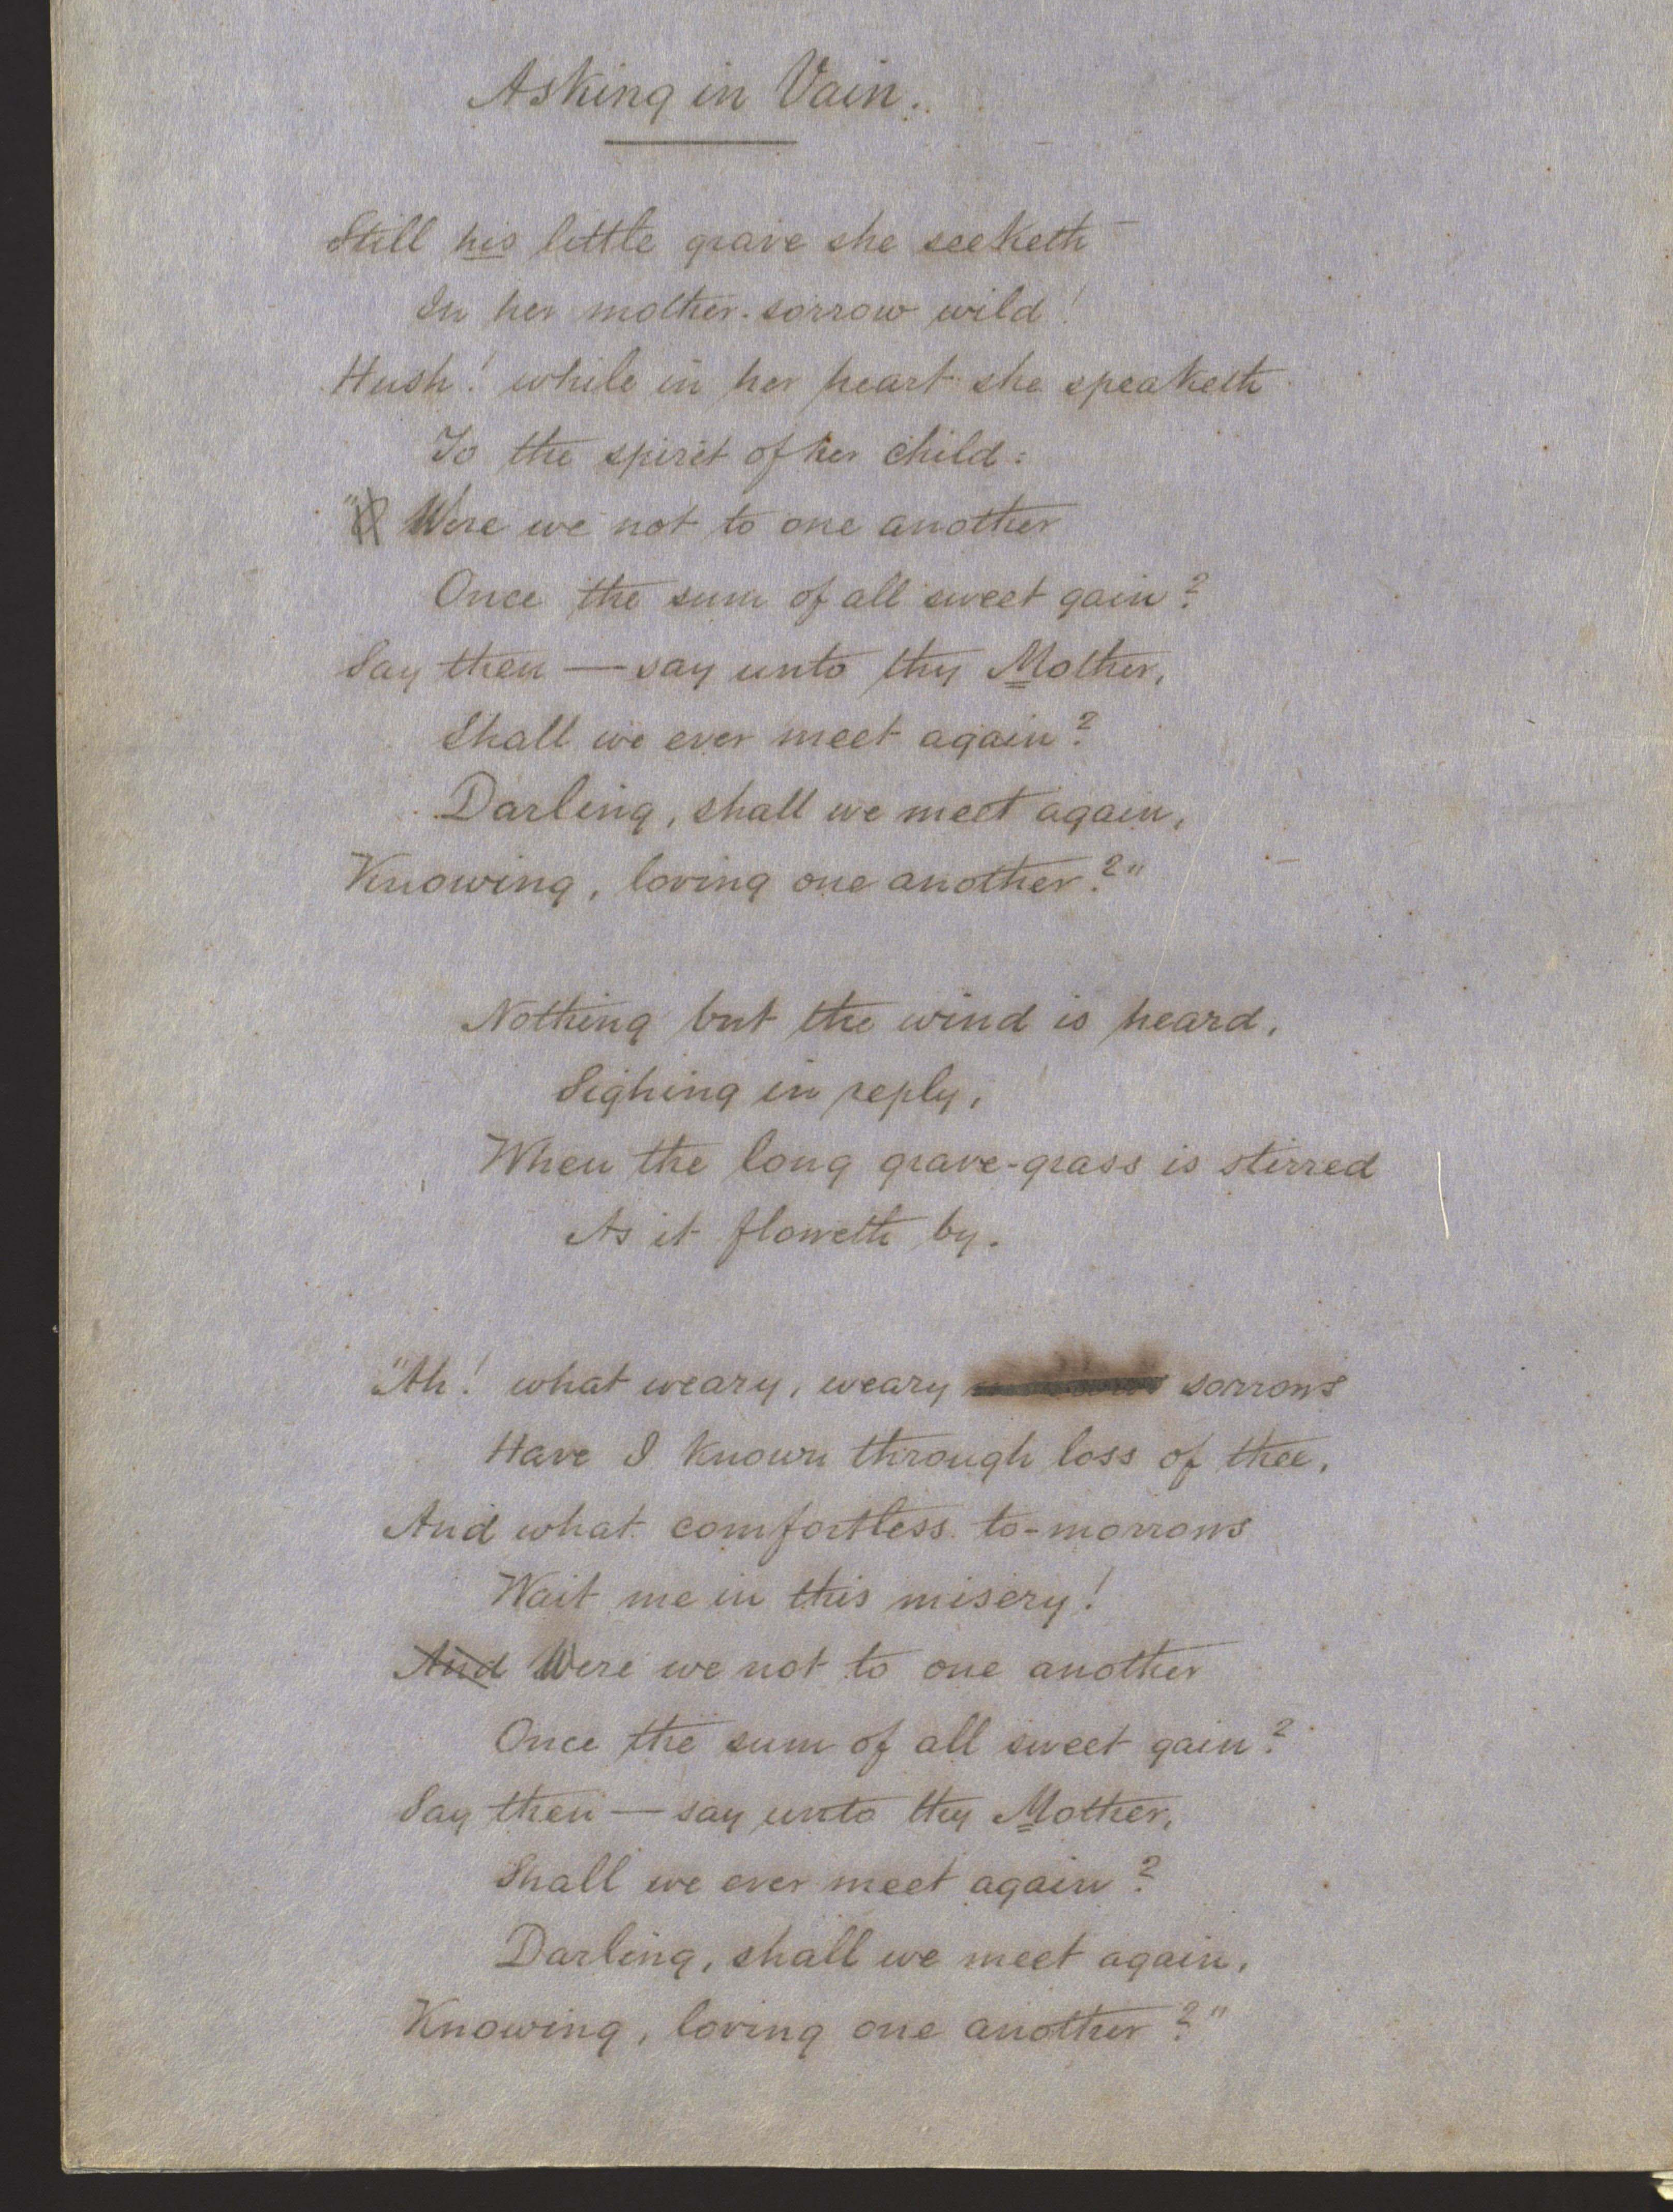 Asking in Vain.
Still his little grave she seeketh
In her mother-sorrow wild!
Hush! while in her heart she speaketh
To the spirit of her child:
"Were we not to one another
Once the sum of all sweet gain?
Say then — say unto thy Mother,
Shall we ever meet again?
Darling, shall we meet again,
Knowing, loving one another?"
Nothing but the wind is heard,
Sighing in reply,
When the long grave-grass is stirred
As it floweth by.
"Ah! what weary, weary sorrows
Have I known through loss of thee,
And what comfortless to-morrows
Wait me in this misery!
And Were we not to one another
Once the sum of all sweet gain?
Say then — say unto thy Mother,
Shall we ever meet again?
Darling, shall we meet again,
Knowing, loving one another?"